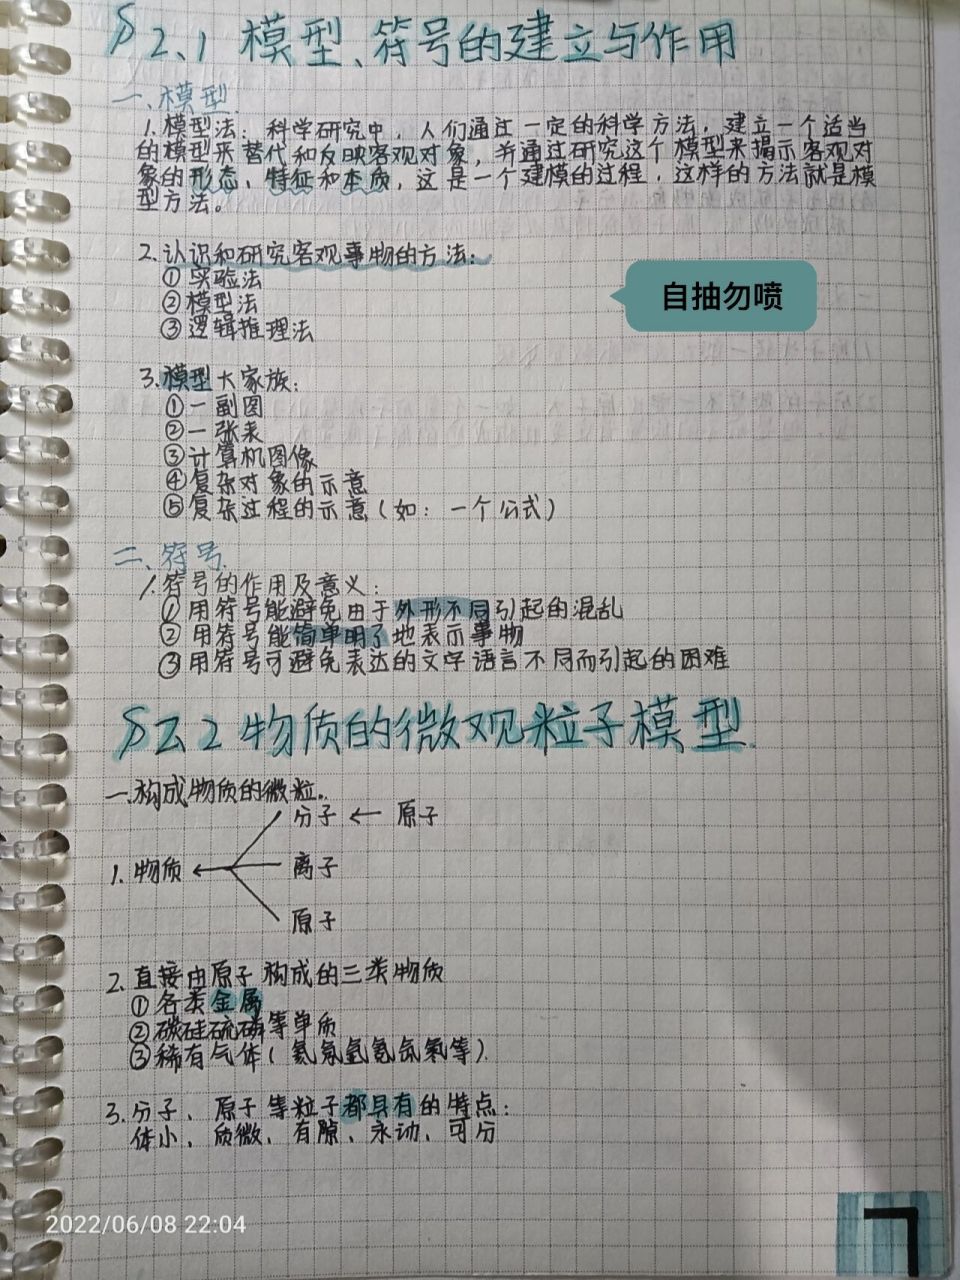 §2.1 模型、符号的建立与作用
一、模型
1.模型法：科学研究中，人们通过一定的科学方法，建立一个适当
的模型来替代和反映客观对象，并通过研究这个模型来揭示客观对
象的形态、特征和本质，这是一个建模的过程，这样的方法就是模
型方法。
2.认识和研究客观事物的方法：
①实验法
自抽勿喷
②模型法
③逻辑推理法
3.模型大家族：
①一副图
②一张表
③计算机图像
④复杂对象的示意
⑤复杂过程的示意（如：一个公式）
二、符号
1.符号的作用及意义：
①用符号能避免由于外形不同引起的混乱
②用符号能简单明了地表示事物
③用符号可避免表达的文字语言不同而引起的困难
§2.2 物质的微观粒子模型
一.构成物质的微粒.
分子 ← 原子
1.物质 ← 离子
原子
2.直接由原子构成的三类物质
①各类金属
②碳硅硫磷等单质
③稀有气体（氦氖氩氪氙氡等）
3.分子、原子等粒子都具有的特点：
体小、质微、有隙、永动、可分
2022/06/08 22:04
7